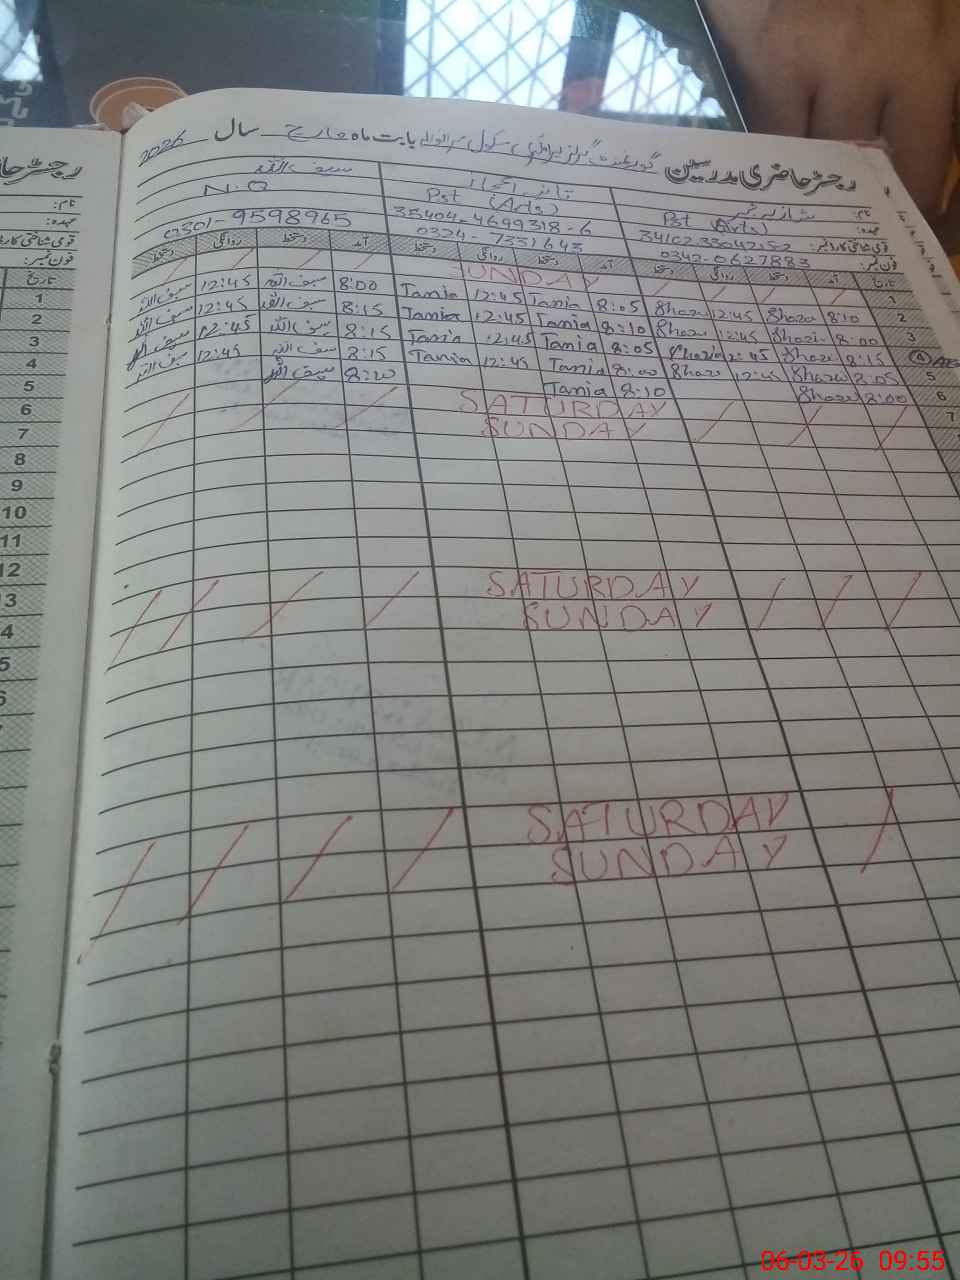 رجسٹر حاضری مدرسین گورنمنٹ گرلز پرائمری سکول بابت ماہ مارچ سال 2026
نام: شازیہ
سیف اللہ
عہدہ: Pst (Arts)
Pst (Arts)
N.Q
قومی شناختی کارڈ نمبر:
35404-4699318-6
فون نمبر: 0342-0627883
0324-7331643
0301-9598965
تاریخ آمد دستخط روانگی دستخط آمد دستخط روانگی دستخط آمد دستخط روانگی دستخط
1 SUNDAY
2 8:10 Shazi 12:45 Shazi 8:05 Tania 12:45 Tania 8:00 سیف اللہ 12:45 سیف اللہ
3 8:00 Shazi 12:45 Shazi 8:10 Tania 12:45 Tania 8:15 سیف اللہ 12:45 سیف اللہ
4 8:15 Shazi 12:45 Shazia 8:05 Tania 12:45 Tania 8:15 سیف اللہ 12:45 سیف اللہ
5 8:05 Shazi 12:45 Shazi 8:00 Tania 12:45 Tania 8:15 سیف اللہ 12:45 سیف اللہ
6 8:00 Shazi 8:10 Tania 8:20 سیف اللہ
7 SATURDAY
SUNDAY
SATURDAY
SUNDAY
SATURDAY
SUNDAY
رجسٹر حا
نام:
عہدہ:
قومی شناختی کارڈ
فون نمبر:
تاریخ
1
2
3
4
5
6
7
8
9
10
11
12
3
4
5
6
06-03-26 09:55